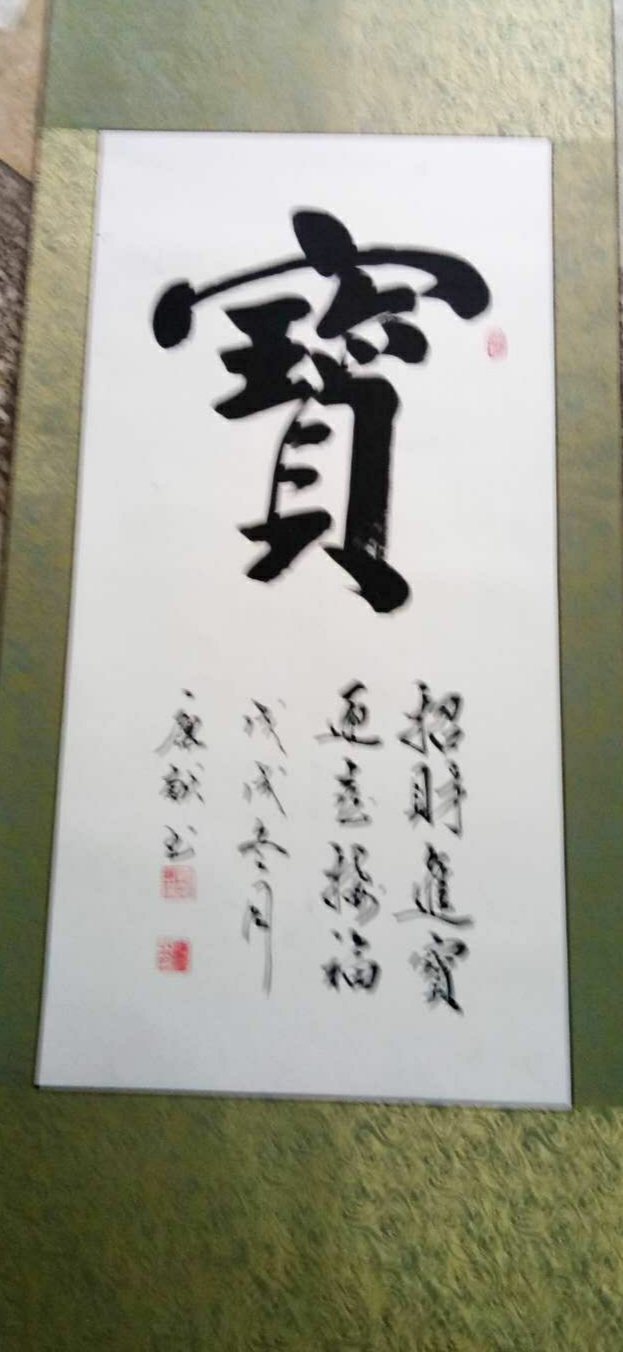 寶
招財進寶
迎喜接福
戊戌冬月
康献书